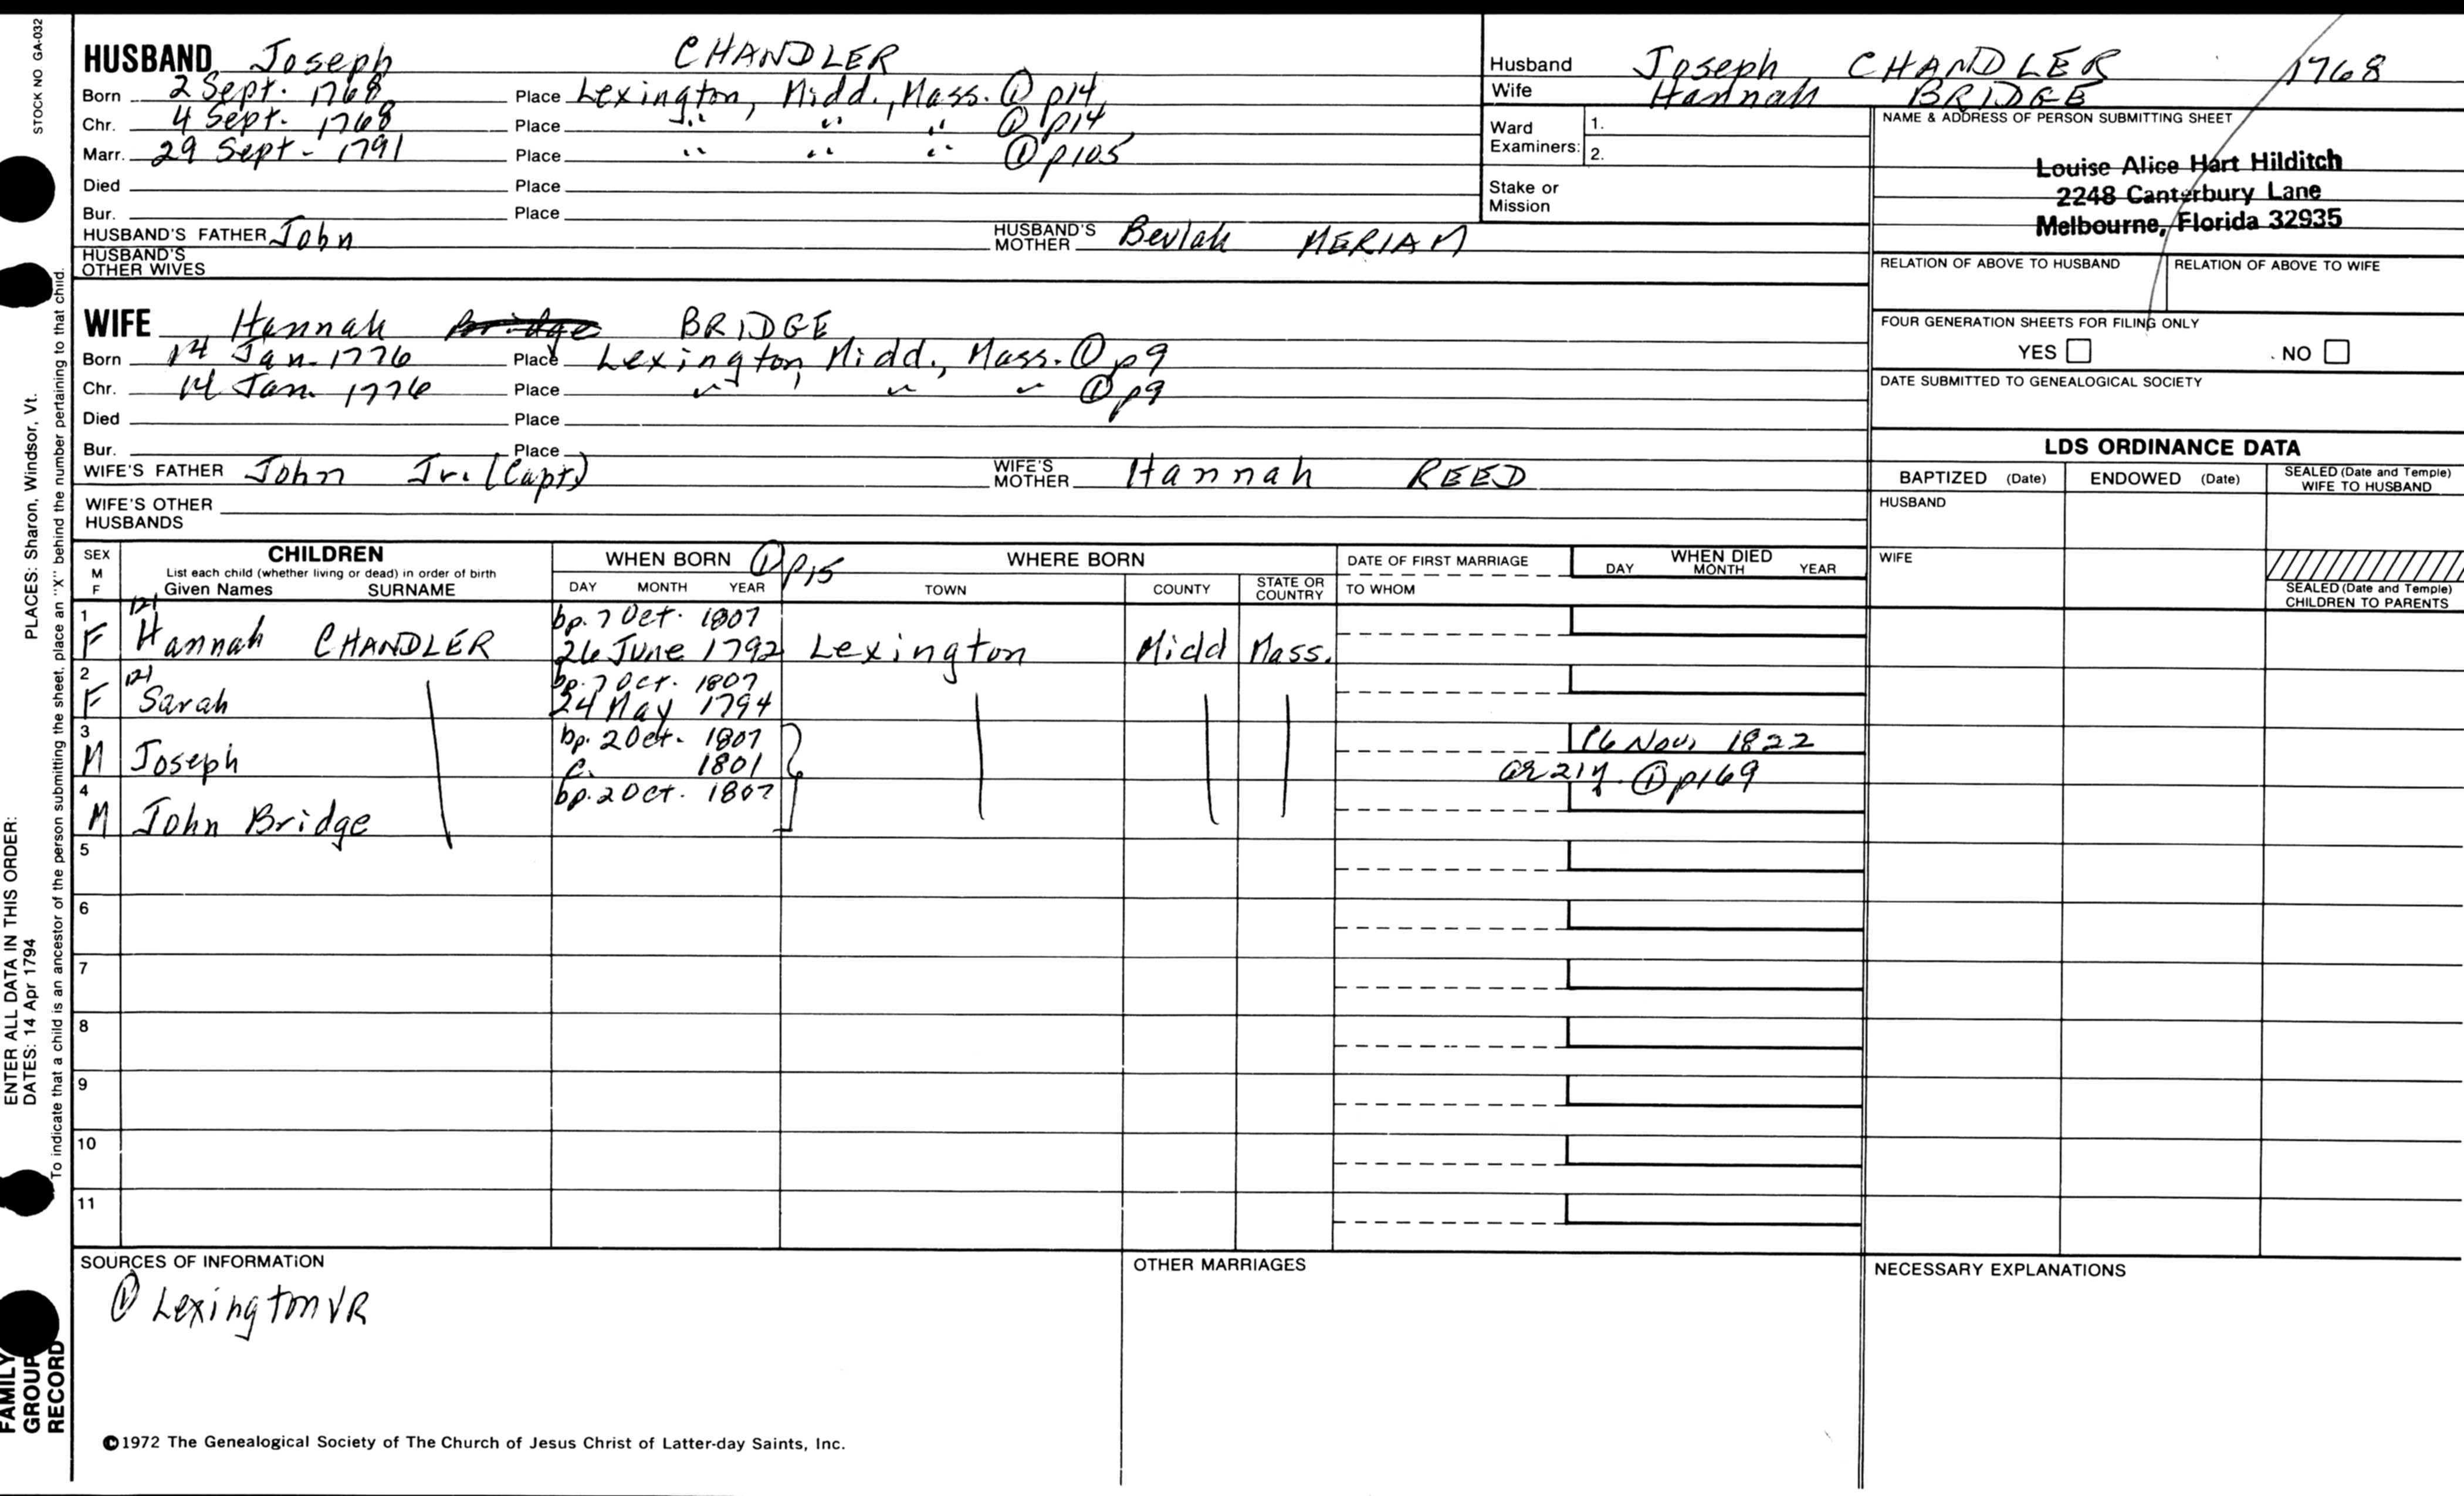 STOCK NO GA-032
HUSBAND Joseph CHANDLER
Born 2 Sept. 1768 Place Lexington, Midd., Mass. ① p14,
Chr. 4 Sept. 1768 Place " " " ① p14
Marr. 29 Sept - 1791 Place " " " ① p105
Died Place
Bur. Place
HUSBAND'S FATHER John HUSBAND'S MOTHER Beulah MERIAM
HUSBAND'S OTHER WIVES
WIFE Hannah BRIDGE
Born 14 Jan. 1776 Place Lexington, Midd., Mass. ① p9
Chr. 14 Jan. 1776 Place " " " ① p9
Died Place
Bur. Place
WIFE'S FATHER John Jr. (Capt) WIFE'S MOTHER Hannah REED
WIFE'S OTHER HUSBANDS
Husband Joseph CHANDLER 1768
Wife Hannah BRIDGE
Ward Examiners: 1.
2.
Stake or Mission
NAME & ADDRESS OF PERSON SUBMITTING SHEET
Louise Alice Hart Hilditch
2248 Canterbury Lane
Melbourne, Florida 32935
RELATION OF ABOVE TO HUSBAND RELATION OF ABOVE TO WIFE
FOUR GENERATION SHEETS FOR FILING ONLY
YES NO
DATE SUBMITTED TO GENEALOGICAL SOCIETY
LDS ORDINANCE DATA
BAPTIZED (Date) ENDOWED (Date) SEALED (Date and Temple) WIFE TO HUSBAND
HUSBAND
WIFE
SEALED (Date and Temple) CHILDREN TO PARENTS
SEX M F
CHILDREN
List each child (whether living or dead) in order of birth
Given Names SURNAME
WHEN BORN ① p15
DAY MONTH YEAR
WHERE BORN
TOWN COUNTY STATE OR COUNTRY
DATE OF FIRST MARRIAGE
TO WHOM
WHEN DIED
DAY MONTH YEAR
1 bp. 7 Oct. 1807
F Hannah CHANDLER 26 June 1792 Lexington Midd Mass.
2 bp. 7 Oct. 1807
F Sarah 24 May 1794
3 bp. 2 Oct. 1807 16 Nov. 1822
M Joseph c. 1801 ae 21y. ① p169
4 bp. 2 Oct. 1807
M John Bridge
5
6
7
8
9
10
11
SOURCES OF INFORMATION
① Lexington VR
OTHER MARRIAGES
NECESSARY EXPLANATIONS
©1972 The Genealogical Society of The Church of Jesus Christ of Latter-day Saints, Inc.
ENTER ALL DATA IN THIS ORDER:
DATES: 14 Apr 1794 PLACES: Sharon, Windsor, Vt.
To indicate that a child is an ancestor of the person submitting the sheet, place an "X" behind the number pertaining to that child.
FAMILY
GROUP
RECORD